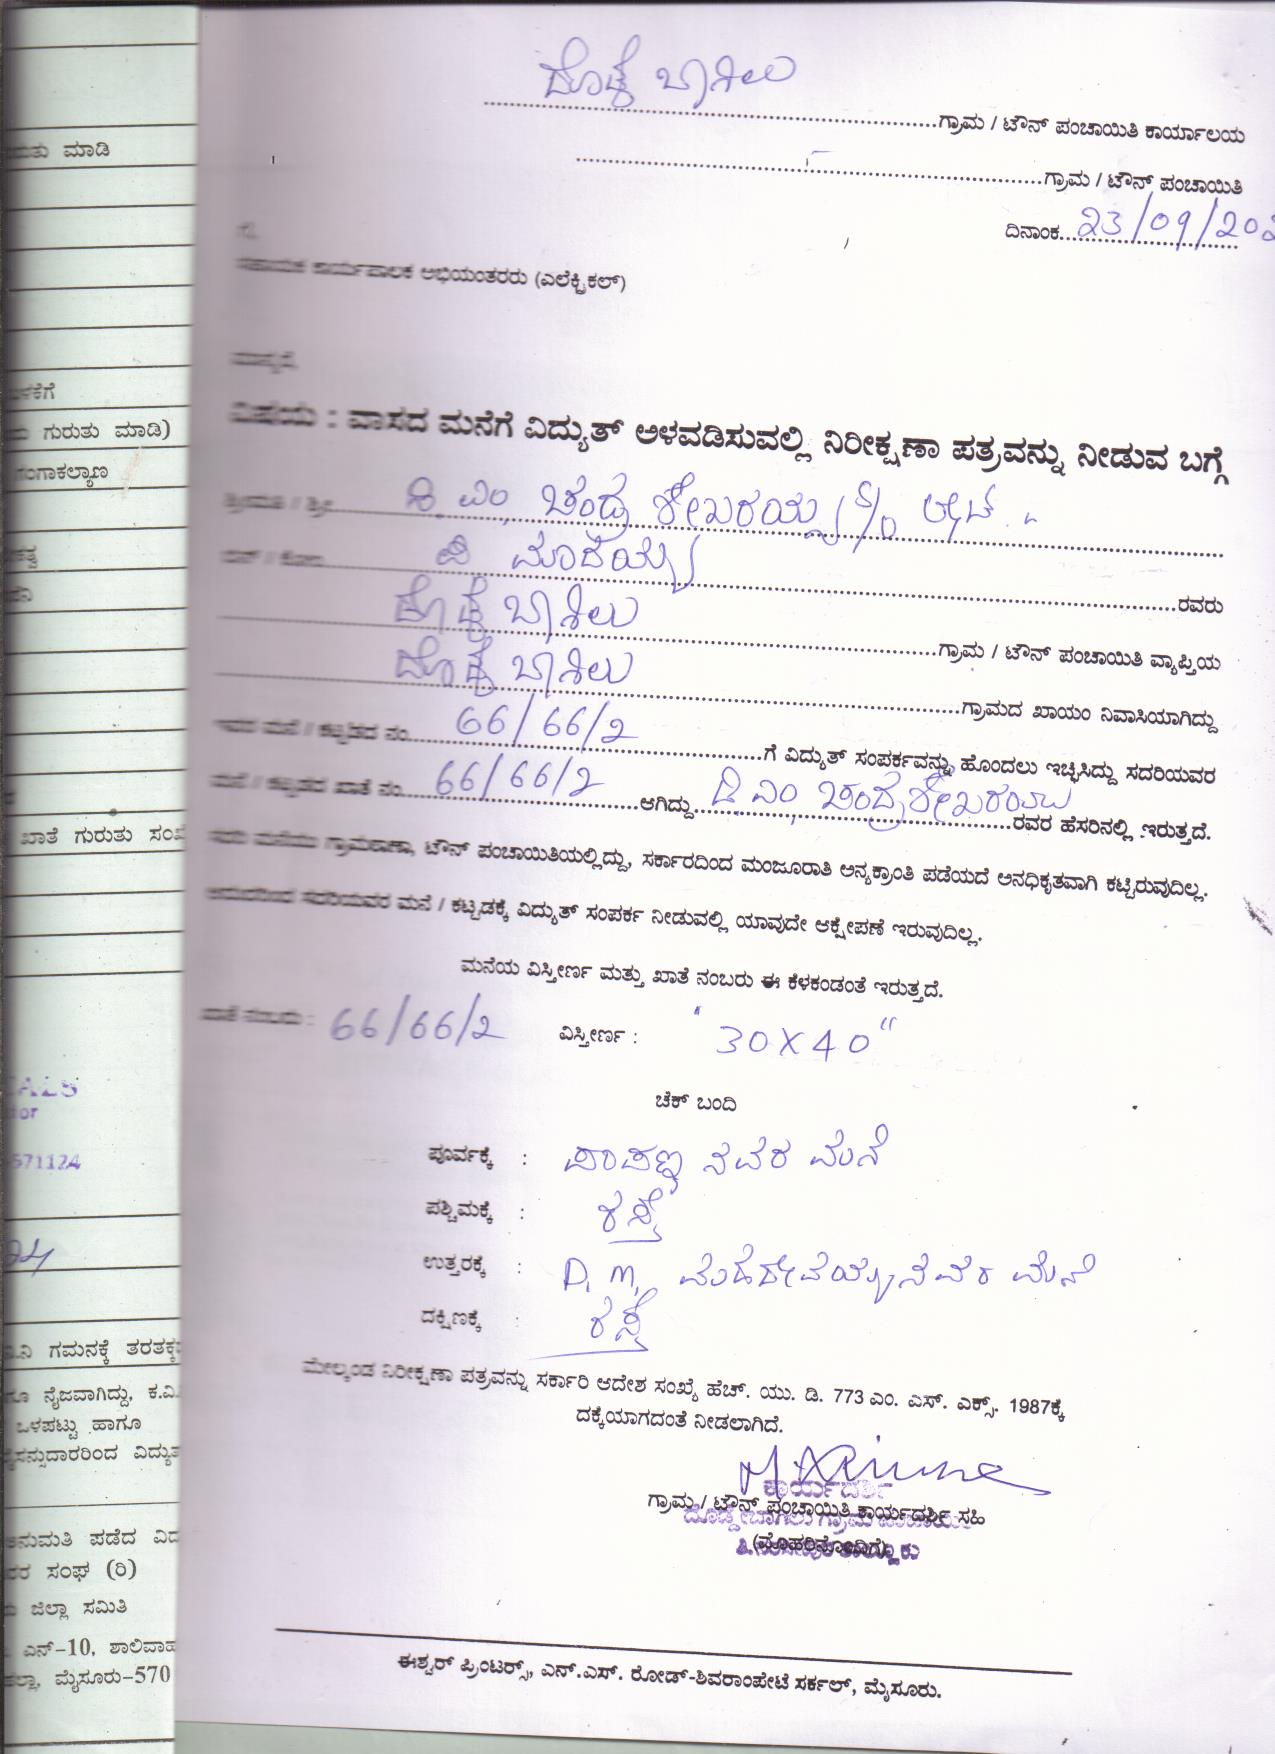 ದೊಡ್ಡೆ ಬಾಗಿಲು
ಗ್ರಾಮ / ಟೌನ್ ಪಂಚಾಯಿತಿ ಕಾರ್ಯಾಲಯ
ಗ್ರಾಮ / ಟೌನ್ ಪಂಚಾಯಿತಿ
ದಿನಾಂಕ 23/09/202
ಗೆ,
ಸಹಾಯಕ ಕಾರ್ಯಪಾಲಕ ಅಭಿಯಂತರರು (ಎಲೆಕ್ಟ್ರಿಕಲ್)
ಮಾನ್ಯರೆ,
ವಿಷಯ : ವಾಸದ ಮನೆಗೆ ವಿದ್ಯುತ್ ಅಳವಡಿಸುವಲ್ಲಿ ನಿರೀಕ್ಷಣಾ ಪತ್ರವನ್ನು ನೀಡುವ ಬಗ್ಗೆ
ಶ್ರೀಮತಿ / ಶ್ರೀ ಡಿ. ಎಂ, ಚಂದ್ರಶೇಖರಯ್ಯ S/o ಲೇಟ್
ಬಿನ್ / ಕೋಂ ಮಾದಯ್ಯ ರವರು
ದೊಡ್ಡೆ ಬಾಗಿಲು ಗ್ರಾಮ / ಟೌನ್ ಪಂಚಾಯಿತಿ ವ್ಯಾಪ್ತಿಯ
ದೊಡ್ಡೆ ಬಾಗಿಲು ಗ್ರಾಮದ ಖಾಯಂ ನಿವಾಸಿಯಾಗಿದ್ದು
ಇವರ ಮನೆ / ಕಟ್ಟಡದ ನಂ. 66/66/2 ಗೆ ವಿದ್ಯುತ್ ಸಂಪರ್ಕವನ್ನು ಹೊಂದಲು ಇಚ್ಛಿಸಿದ್ದು ಸದರಿಯವರ
ಮನೆ / ಕಟ್ಟಡದ ಖಾತೆ ನಂ. 66/66/2 ಆಗಿದ್ದು ಡಿ ಎಂ, ಚಂದ್ರಶೇಖರಯ್ಯ ರವರ ಹೆಸರಿನಲ್ಲಿ ಇರುತ್ತದೆ.
ಸದರಿ ಮನೆಯು ಗ್ರಾಮಠಾಣಾ, ಟೌನ್ ಪಂಚಾಯಿತಿಯಲ್ಲಿದ್ದು, ಸರ್ಕಾರದಿಂದ ಮಂಜೂರಾತಿ ಅನ್ಯಕ್ರಾಂತಿ ಪಡೆಯದೆ ಅನಧಿಕೃತವಾಗಿ ಕಟ್ಟಿರುವುದಿಲ್ಲ.
ಆದುದರಿಂದ ಸದರಿಯವರ ಮನೆ / ಕಟ್ಟಡಕ್ಕೆ ವಿದ್ಯುತ್ ಸಂಪರ್ಕ ನೀಡುವಲ್ಲಿ ಯಾವುದೇ ಆಕ್ಷೇಪಣೆ ಇರುವುದಿಲ್ಲ.
ಮನೆಯ ವಿಸ್ತೀರ್ಣ ಮತ್ತು ಖಾತೆ ನಂಬರು ಈ ಕೆಳಕಂಡಂತೆ ಇರುತ್ತದೆ.
ಖಾತೆ ನಂಬರು : 66/66/2 ವಿಸ್ತೀರ್ಣ : "30X40"
ಚೆಕ್ ಬಂದಿ
ಪೂರ್ವಕ್ಕೆ : ಪಾಪಣ್ಣ ನವರ ಮನೆ
ಪಶ್ಚಿಮಕ್ಕೆ : ರಸ್ತೆ
ಉತ್ತರಕ್ಕೆ : D. M, ಮಹದೇವಯ್ಯನವರ ಮನೆ
ದಕ್ಷಿಣಕ್ಕೆ : ರಸ್ತೆ
ಮೇಲ್ಕಂಡ ನಿರೀಕ್ಷಣಾ ಪತ್ರವನ್ನು ಸರ್ಕಾರಿ ಆದೇಶ ಸಂಖ್ಯೆ ಹೆಚ್. ಯು. ಡಿ. 773 ಎಂ. ಎಸ್. ಎಕ್ಸ್. 1987ಕ್ಕೆ
ದಕ್ಕೆಯಾಗದಂತೆ ನೀಡಲಾಗಿದೆ.
ಕಾರ್ಯದರ್ಶಿ
ಗ್ರಾಮ / ಟೌನ್ ಪಂಚಾಯಿತಿ ಕಾರ್ಯದರ್ಶಿ ಸಹಿ
ದೊಡ್ಡೇಬಾಗಿಲು ಗ್ರಾಮ ಪಂಚಾಯಿತಿ
(ಮೊಹರಿನೊಂದಿಗೆ)
ಈಶ್ವರ್ ಪ್ರಿಂಟರ್ಸ್, ಎನ್.ಎಸ್. ರೋಡ್-ಶಿವರಾಂಪೇಟೆ ಸರ್ಕಲ್, ಮೈಸೂರು.
ಮಾಡಿ
ಗುರುತು ಮಾಡಿ)
ಗಂಗಾಕಲ್ಯಾಣ
ಖಾತೆ ಗುರುತು
571124
ಗಮನಕ್ಕೆ
ನೈಜವಾಗಿದ್ದು, ಕ.ವಿ.
ಒಳಪಟ್ಟು ಹಾಗೂ
ಅನುಮತಿ ಪಡೆದ
ಸಂಘ (ರಿ)
ಜಿಲ್ಲಾ ಸಮಿತಿ
ಎನ್-10,
ಮೈಸೂರು-570